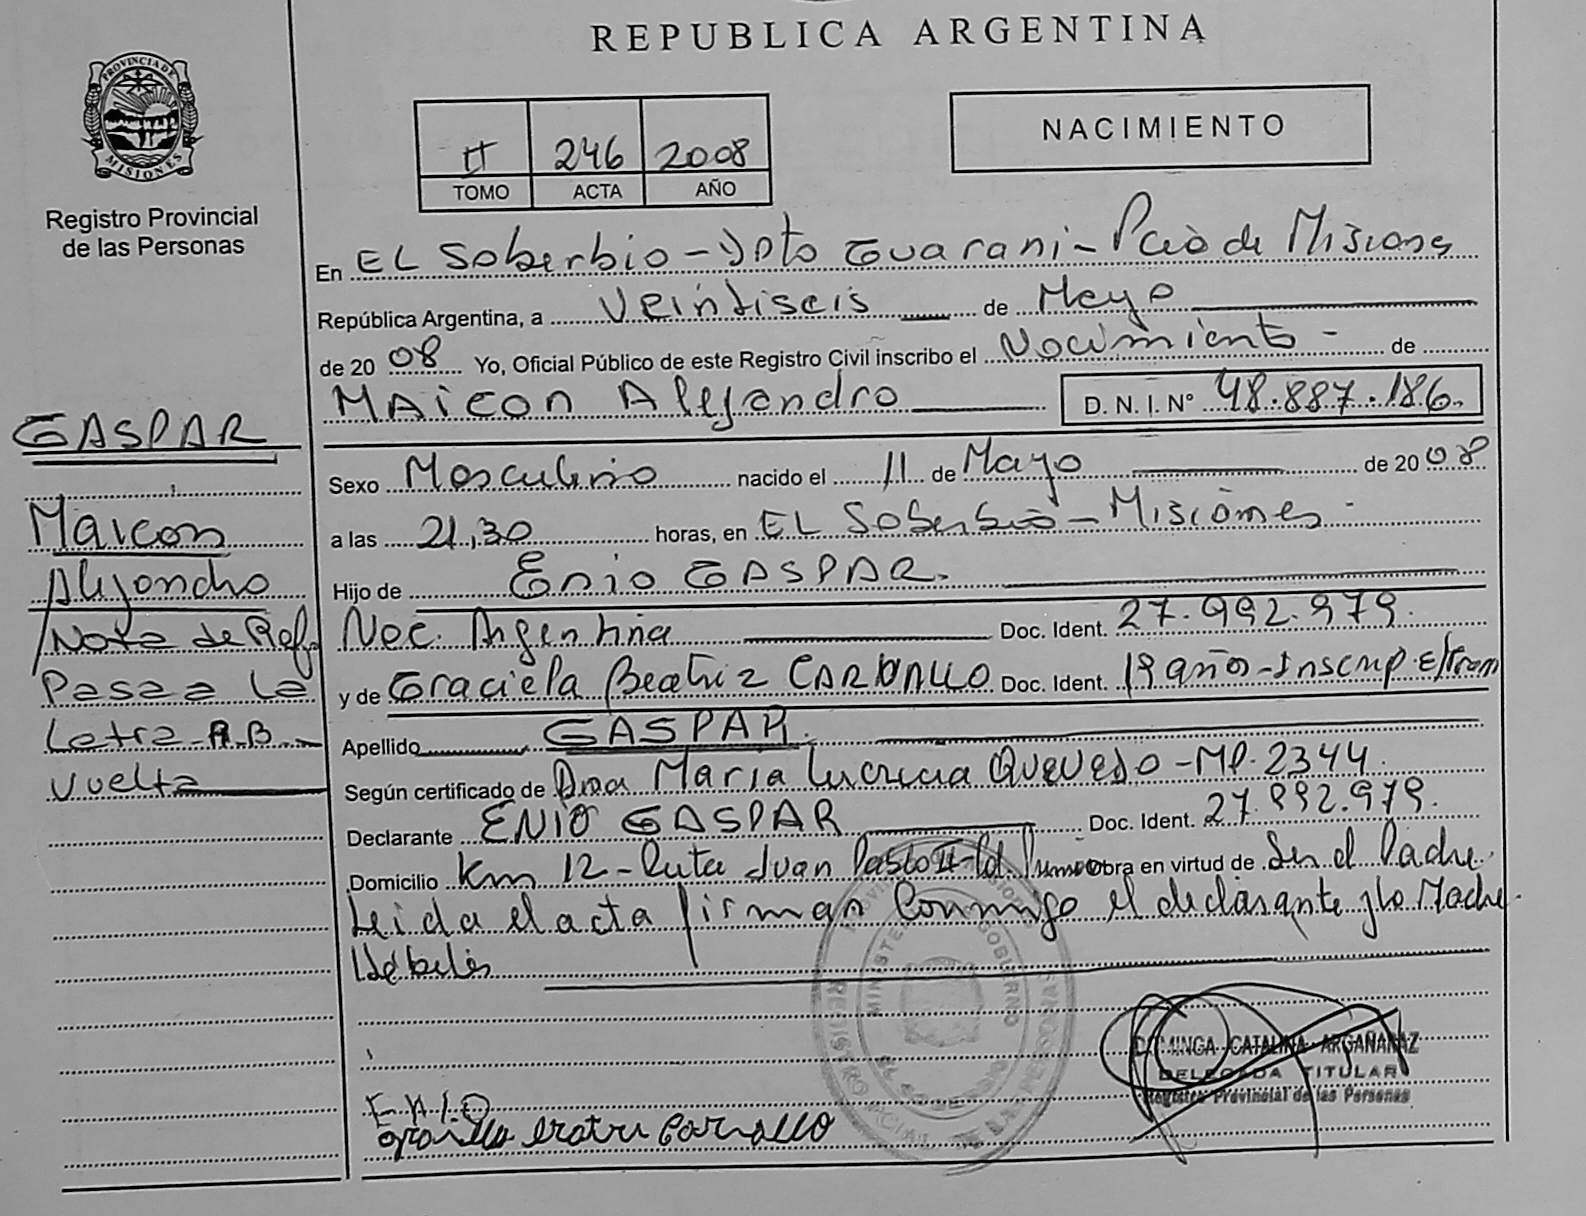 REPUBLICA ARGENTINA
PROVINCIA DE MISIONES
Registro Provincial
de las Personas
II 246 2008
TOMO ACTA AÑO
NACIMIENTO
En EL Soberbio - Dpto Guarani - Pcia de Misiones
República Argentina, a Veintiseis de Mayo
de 20 08 Yo, Oficial Público de este Registro Civil inscribo el Nacimiento - de
MAicon Alejandro D. N. I. N° 48.887.186.
GASPAR
Maicon
Alejandro
Nota de Ref.
Pasa a La
Letra A.B
vuelta
Sexo Masculino nacido el 11 de Mayo de 20 08
a las 21,30 horas, en EL Soberbio - Misiones -
Hijo de Enio GASPAR.
Nac. Argentina Doc. Ident. 27.992.979.
y de Graciela Beatriz CARVALLO Doc. Ident. 19 años - Inscrip. E/Tram
Apellido GASPAR.
Según certificado de Dra Maria Lucrecia Quevedo - MP. 2344.
Declarante ENIO GASPAR Doc. Ident. 27.992.979.
Domicilio Km 12 - Ruta Juan Pablo II - Col. obra en virtud de Ser el Padre.
Leida el acta firman Conmigo el declarante y la Madre.
MINISTERIO GOBIERNO
REGISTRO DE LAS PERSONAS
DOMINGA CATALINA ARGAÑARAZ
DELEGADA TITULAR
Registro Provincial de las Personas
ENIO